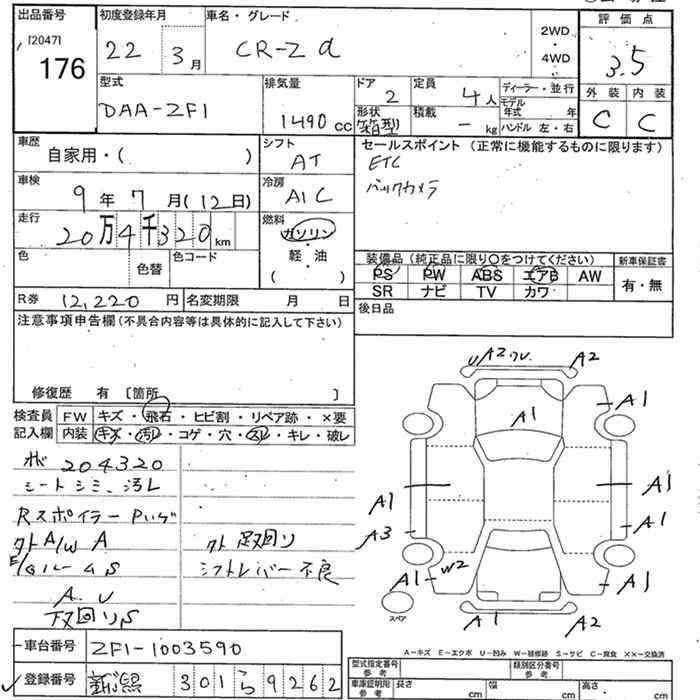 出品番号 初度登録年月 車名・グレード 評価点
[2047] 22 年 3月 CR-Z α 2WD・4WD 3.5
176
型式 排気量 ドア 定員 ディーラー・並行 外装 内装
DAA-ZF1 1490 cc 2 4人 モデル年式 年 C C
形状 箱型 積載 - kg ハンドル 左・右
車歴 自家用・( ) シフト AT セールスポイント (正常に機能するものに限ります)
ETC
車検 9年7月(12日) 冷房 AIC バックカメラ
走行 20万4千320km 燃料 ガソリン・軽・油 ( )
色 色替 色コード
装備品 (純正品に限り○をつけてください) 新車保証書
PS PW ABS エアB AW 有・無
SR ナビ TV カワ
R券 12,220円 名変期限 月 日 後日品
注意事項申告欄(不具合内容等は具体的に記入して下さい)
修復歴 有 〔箇所 〕
検査員 FW キズ・飛石・ヒビ割・リペア跡・×要
記入欄 内装 キズ・汚レ・コゲ・穴・スレ・キレ・破レ
204320
シートシミ、汚レ
Rスポイラー
外A/W A 外 足回り
ルームS シフトレバー不良
A.U
下回りS
UA2 A2
A1 A1
A1 A1
A3 A1
A1 W2 A1
スペア A1 A2
A-キズ E-エクボ U-凹み W-補修跡 S-サビ C-腐食 ××-交換済
車台番号 ZF1-1003590
型式指定番号 参考 類別区分番号 参考
登録番号 新潟 301 ら 9262
車庫証明用 参考 長さ cm 幅 cm 高さ cm